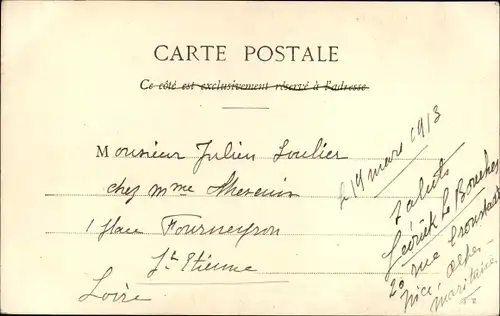 CARTE POSTALE
Ce côté est exclusivement réservé à l'adresse
Monsieur Julien Soulier
chez Mme
1 place Fourneyron
St Etienne
Loire
le 19 mars 1913
Saluts
Le Boucher
20 rue Cronstadt
Nice, Alpes-
Maritimes